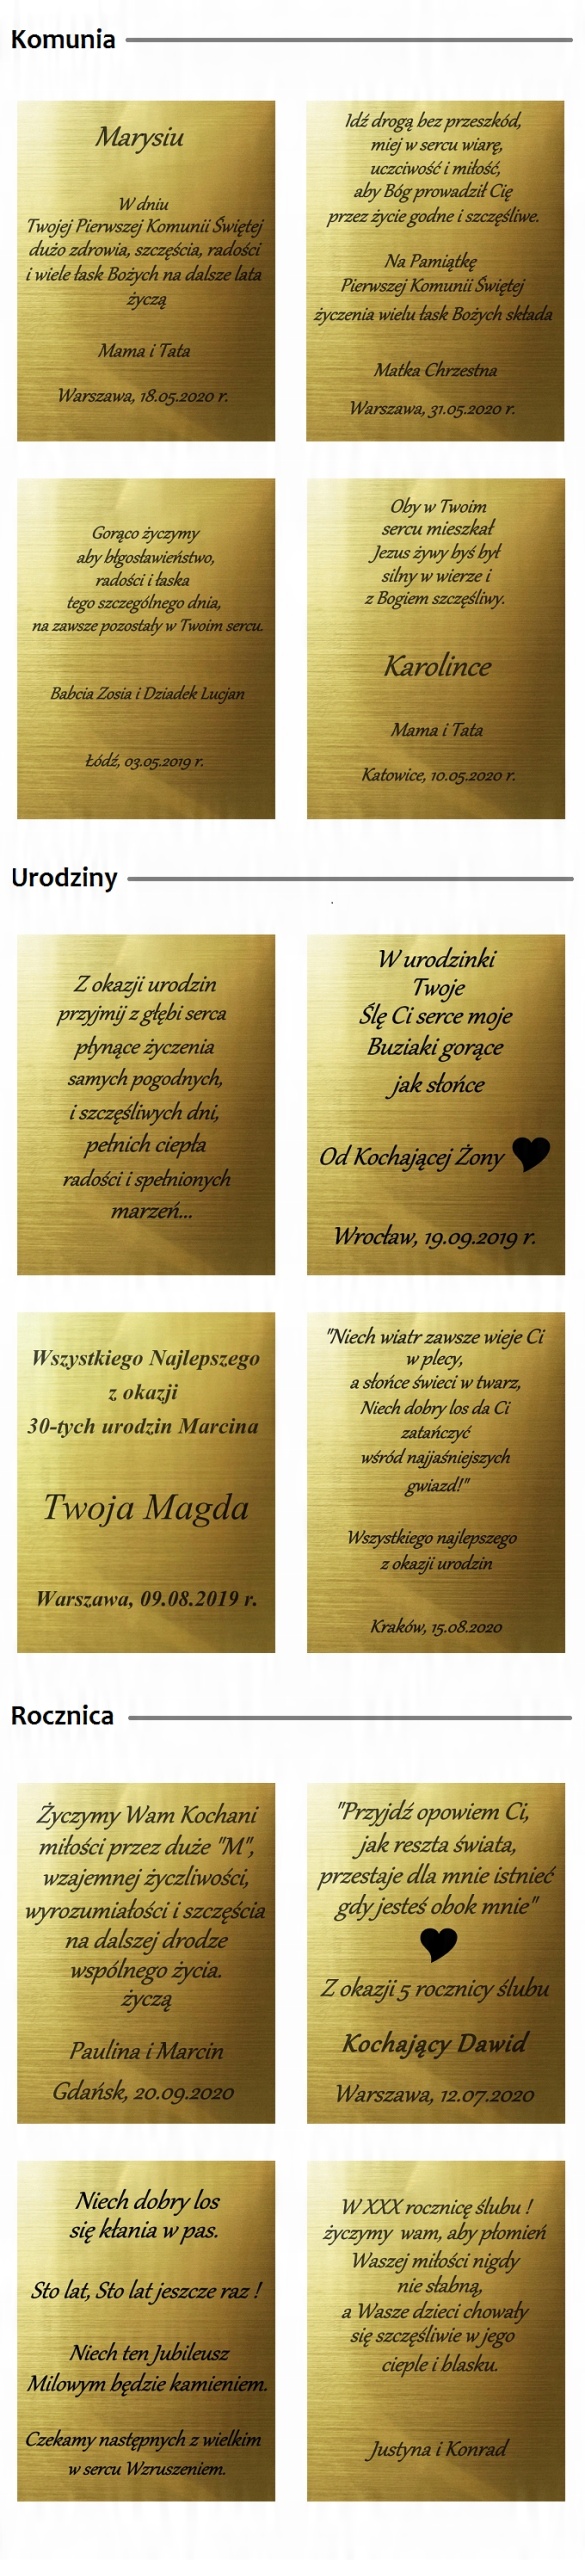 Komunia
Marysiu
W dniu
Twojej Pierwszej Komunii Świętej
dużo zdrowia, szczęścia, radości
i wiele łask Bożych na dalsze lata
życzą
Mama i Tata
Warszawa, 18.05.2020 r.
Idź drogą bez przeszkód,
miej w sercu wiarę,
uczciwość i miłość,
aby Bóg prowadził Cię
przez życie godne i szczęśliwe.
Na Pamiątkę
Pierwszej Komunii Świętej
życzenia wielu łask Bożych składa
Matka Chrzestna
Warszawa, 31.05.2020 r.
Gorąco życzymy
aby błgosławieństwo,
radości i łaska
tego szczególnego dnia,
na zawsze pozostały w Twoim sercu.
Babcia Zosia i Dziadek Lucjan
Łódź, 03.05.2019 r.
Oby w Twoim
sercu mieszkał
Jezus żywy byś był
silny w wierze i
z Bogiem szczęśliwy.
Karolince
Mama i Tata
Katowice, 10.05.2020 r.
Urodziny
Z okazji urodzin
przyjmij z głębi serca
płynące życzenia
samych pogodnych,
i szczęśliwych dni,
pełnich ciepła
radości i spełnionych
marzeń...
W urodzinki
Twoje
Ślę Ci serce moje
Buziaki gorące
jak słońce
Od Kochającej Żony
Wrocław, 19.09.2019 r.
Wszystkiego Najlepszego
z okazji
30-tych urodzin Marcina
Twoja Magda
Warszawa, 09.08.2019 r.
"Niech wiatr zawsze wieje Ci
w plecy,
a słońce świeci w twarz,
Niech dobry los da Ci
zatańczyć
wśród najjaśniejszych
gwiazd!"
Wszystkiego najlepszego
z okazji urodzin
Kraków, 15.08.2020
Rocznica
Życzymy Wam Kochani
miłości przez duże "M",
wzajemnej życzliwości,
wyrozumiałości i szczęścia
na dalszej drodze
wspólnego życia.
życzą
Paulina i Marcin
Gdańsk, 20.09.2020
"Przyjdź opowiem Ci,
jak reszta świata,
przestaje dla mnie istnieć
gdy jesteś obok mnie"
Z okazji 5 rocznicy ślubu
Kochający Dawid
Warszawa, 12.07.2020
Niech dobry los
się kłania w pas.
Sto lat, Sto lat jeszcze raz !
Niech ten Jubileusz
Milowym będzie kamieniem.
Czekamy następnych z wielkim
w sercu Wzruszeniem.
W XXX rocznicę ślubu !
życzymy wam, aby płomień
Waszej miłości nigdy
nie słabną,
a Wasze dzieci chowały
się szczęśliwie w jego
cieple i blasku.
Justyna i Konrad